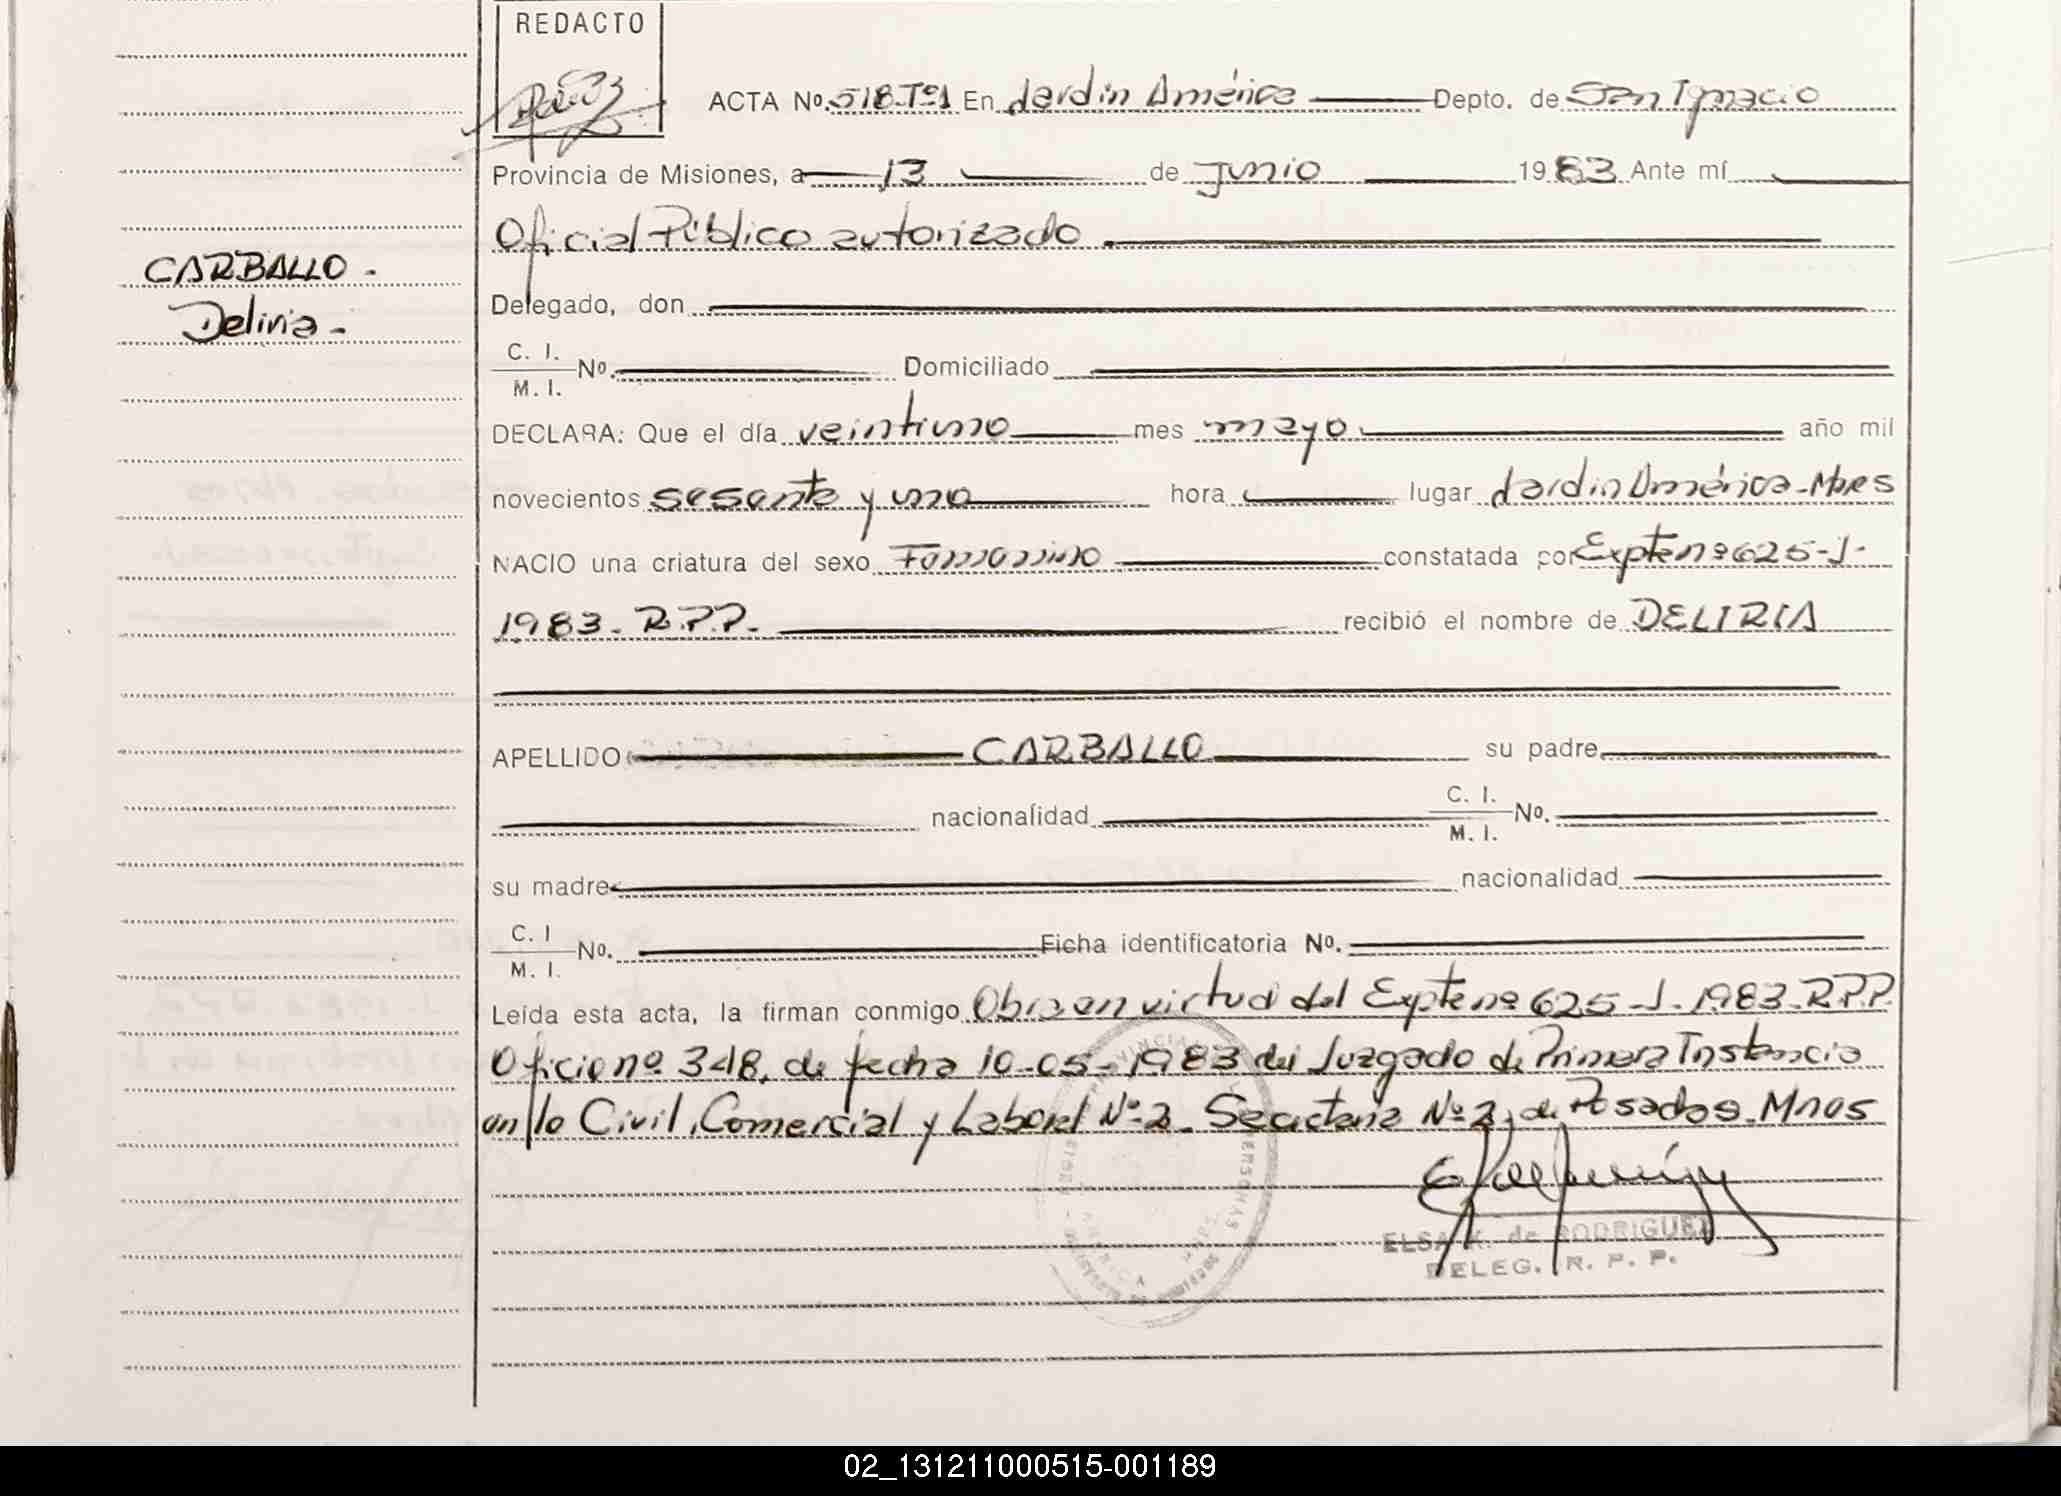 REDACTO
ACTA No. 518-Tº1 En Jardín América Depto. de San Ignacio
Provincia de Misiones, a 13 de Junio 1983 Ante mí
Oficial Público autorizado
CARBALLO -
Deliria -
Delegado, don
C. I.
M. I. No. Domiciliado
DECLARA: Que el día veintiuno mes mayo año mil
novecientos sesenta y uno hora lugar Jardín América - Mnes
NACIO una criatura del sexo Femenino constatada por Expte nº 625-J-
1983. R.P.P. recibió el nombre de DELIRIA
APELLIDO CARBALLO su padre
nacionalidad C. I.
M. I. No.
su madre nacionalidad
C. I
M. I. No. Ficha identificatoria No.
Leída esta acta, la firman conmigo Obra en virtud del Expte nº 625-J-1983-R.P.P.
Oficio nº 348, de fecha 10-05-1983 del Juzgado de Primera Instancia
en lo Civil, Comercial y Laboral Nº 2. Secretaria Nº 2, de Posadas. Mnes
ELSA K. de RODRIGUEZ
DELEG. R. P. P.
02_131211000515-001189